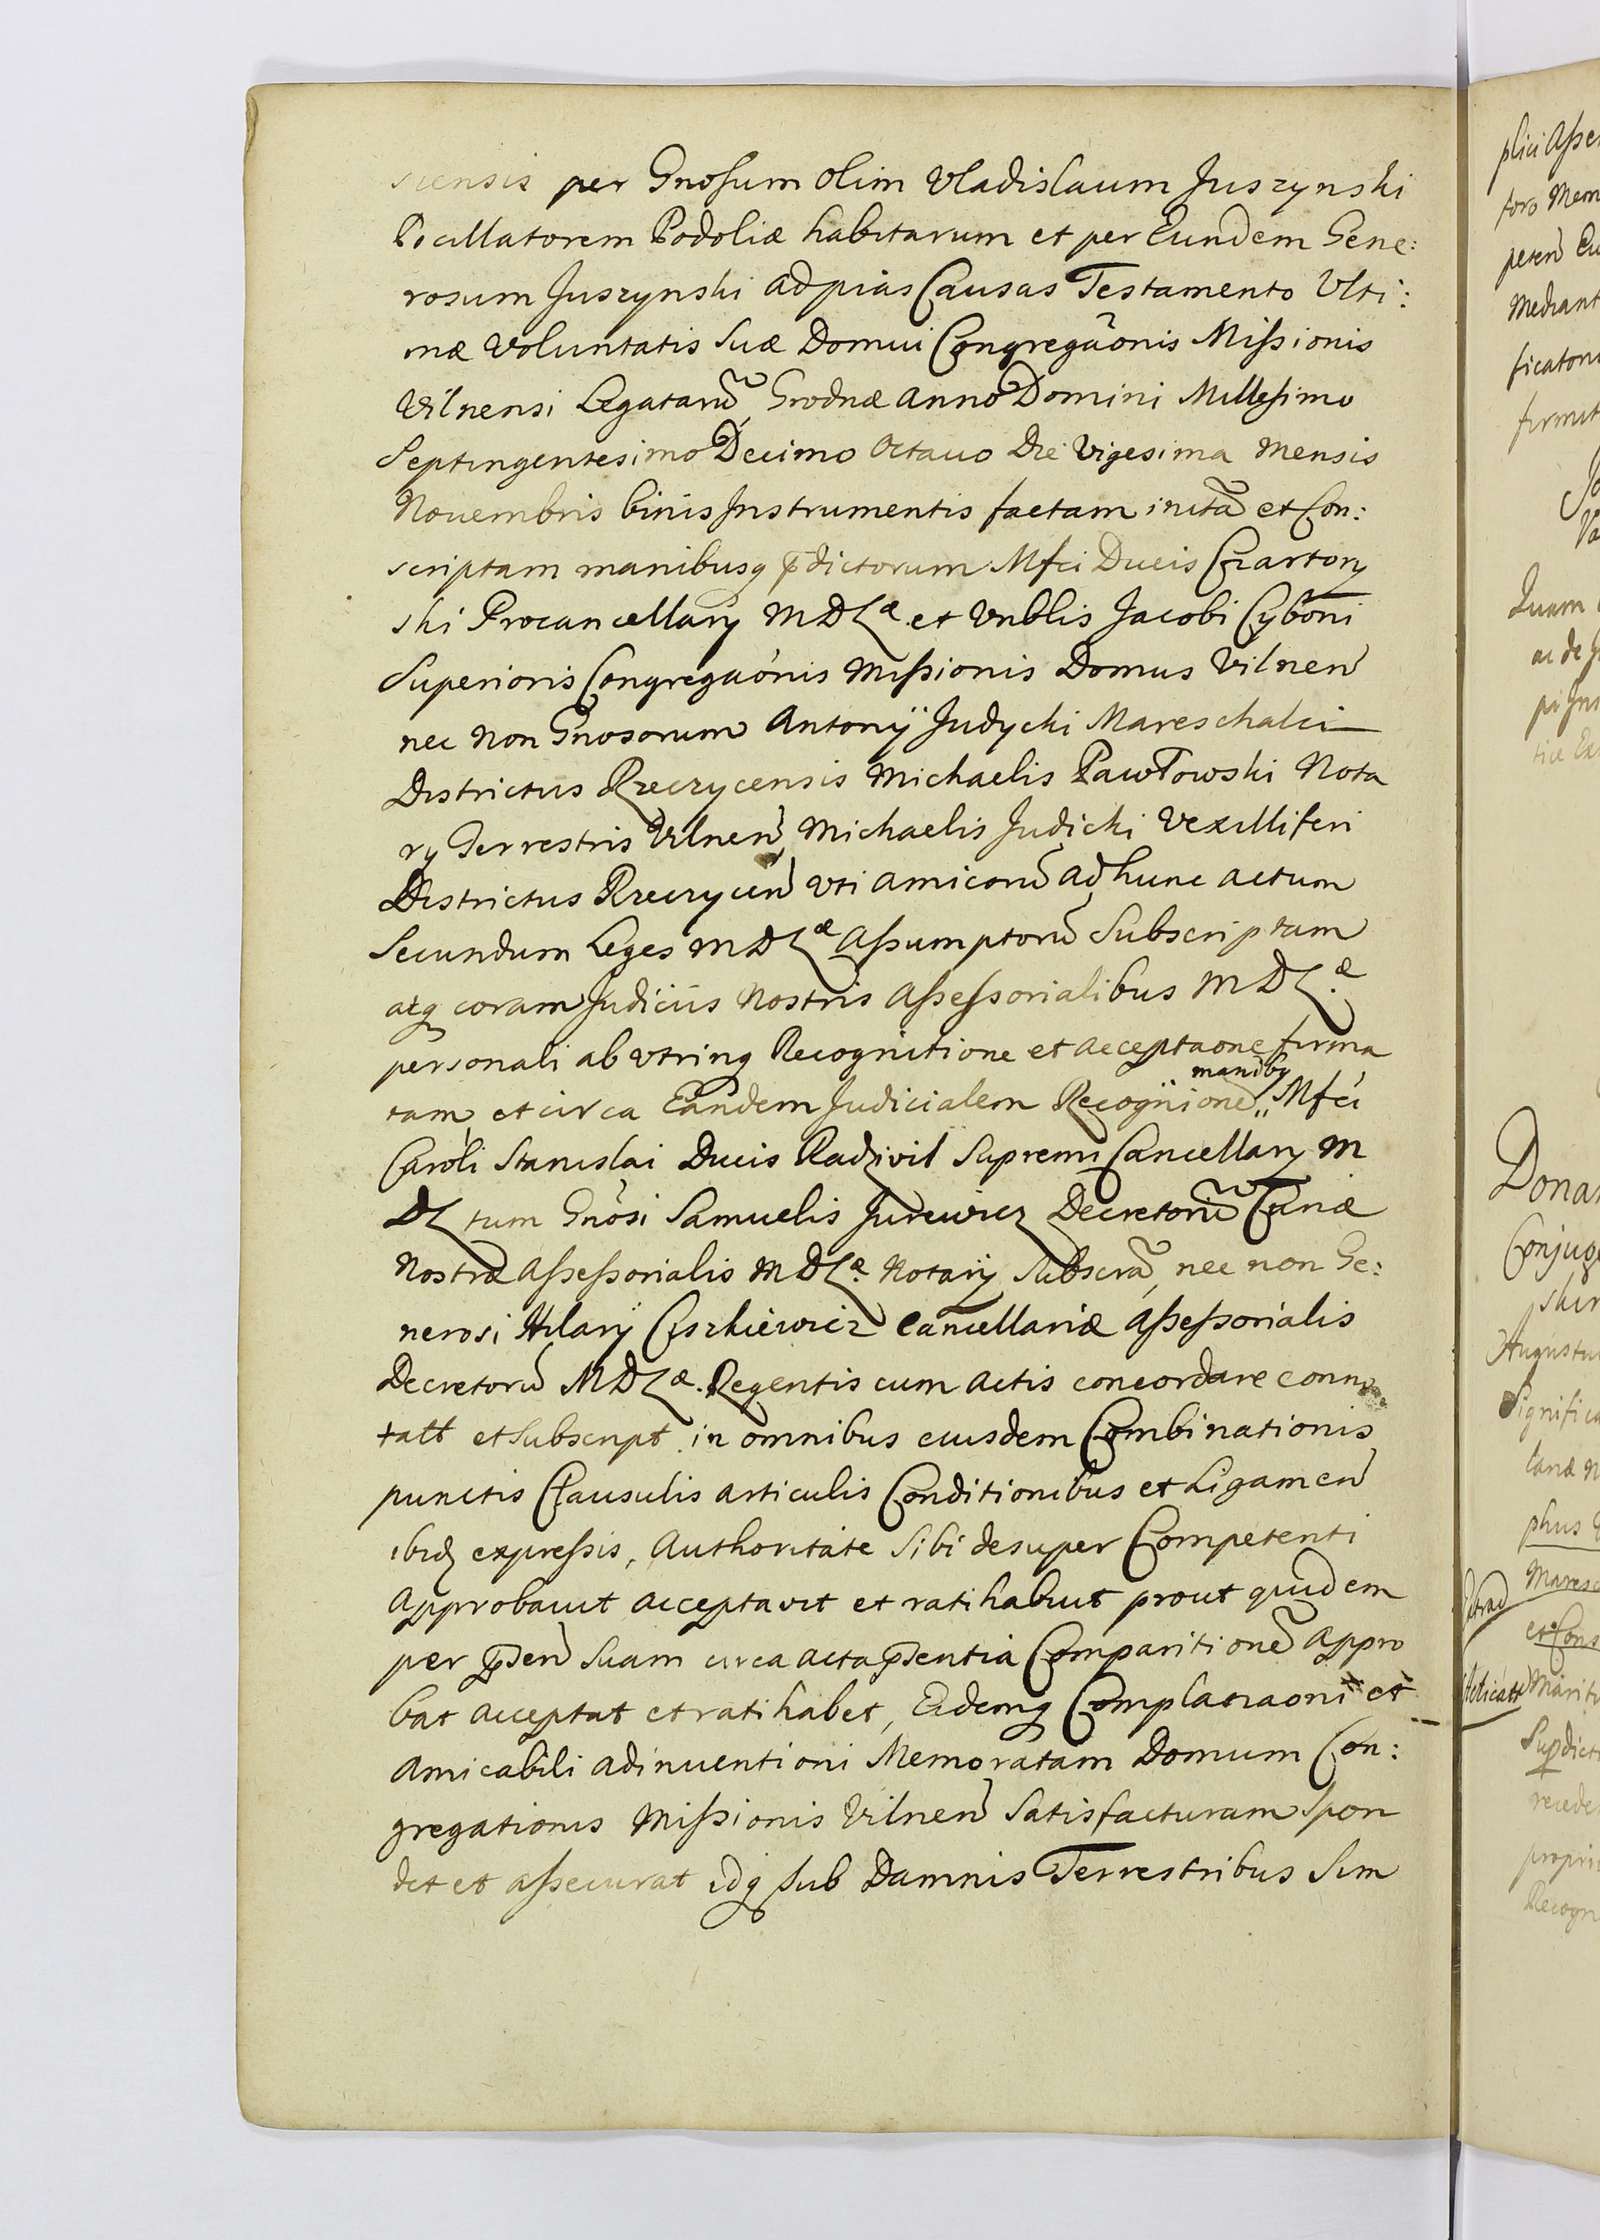 siensis per Gnosum olim Vladislaum Juszynski
Pocillatorem Podoliæ habitarum et per Eundem Gene:
rosum Juszynski ad pias Causas Testamento Ulti:
mæ Voluntatis Suæ Domui Congregãonis Missionis
Vilnensi Legatarũ, Grodnæ Anno Domini Millesimo
Septingentesimo Decimo Octauo Die Vigesima Mensis
Nouembris binis Instrumentis factam initã et Con:
scriptam manibusq p̃dictorum Mfci Ducis Czartory
ski Procancellarij M D Læ et Vnblis Jacobi Cyboni
Superioris Congregaõnis Missionis Domus Vilneñ
nec non Gnosorum Antonij Judycki Mareschalci
Districtus Rzeczycensis Michaelis Pawłowski Nota
rij Terrestris Vilneñ, Michaelis Judicki Vexilliferi
Districtus Rzeczyceñ Vti amicorũ ad hunc actum
Secundum Leges M D Læ Assumptorũ Subscriptam
atq coram Judicijs Nostris Assessorialibus M D Læ
personali ab vtrinq Recognitione et acceptaone firma
tam, et circa Eandem Judicialem Recognionẽ „ manibq Mfci
Caroli Stanislai Ducis Radzivil Supremi Cancellarij M
D L tum Gnõsi Samuelis Jurewicz Decretorũ Cãriæ
Nostræ Assessorialis M D Læ Notarij Subscrã, nec non Ge:
nerosi Hilarij Ciszkiewicz Cancellariæ Assessorialis
Decretorũ M D Læ. Regentis cum actis concordare conno
tatt et Subscript in omnibus eiusdem Combinationis
punctis Clausulis articulis Conditionibus et Ligameñ
ibidẽ expressis, Authoritate Sibi desuper Competenti
Approbauit acceptavit et ratihabuit prout quidem
per p̃señ Suam circa acta p̃sentia Comparitionẽ appro
bat acceptat et ratihabet, Eidemq Complanaoni et
Amicabili adinuentioni Memoratam Domum Con:
gregationis Missionis Vilneñ Satisfacturam Spon
det et assecurat idq sub Damnis Terrestribus Sim